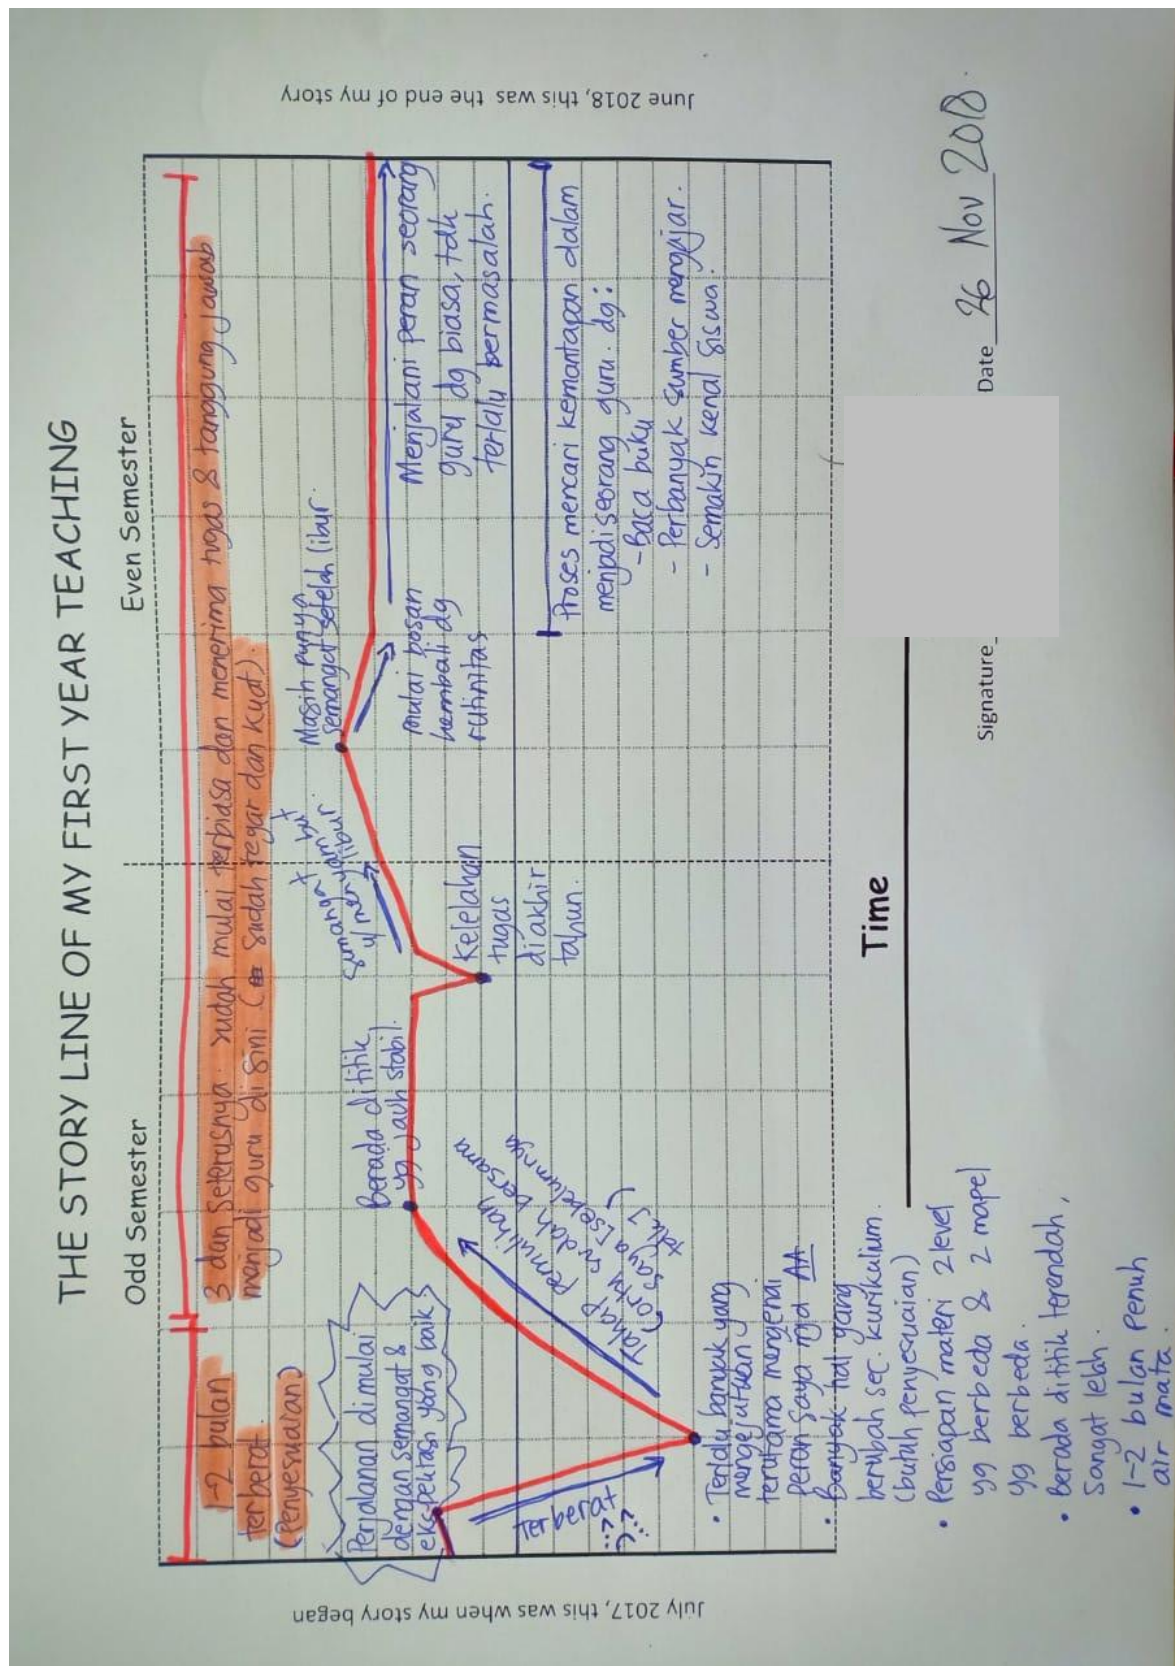 THE STORY LINE OF MY FIRST YEAR TEACHING
Odd Semester
Even Semester
July 2017, this was when my story began
June 2018, this was the end of my story
1-2 bulan
terberat.
(Penyesuaian)
3 dan seterusnya. sudah mulai terbiasa dan menerima tugas & tanggung jawab
menjadi guru di sini ( sudah tegar dan kuat).
Perjalanan dimulai
dengan semangat &
ekspektasi yang baik
Terberat
Tahap pemulihan
(ortu sudah bersama
saya [sebelumnya
Berada di titik
yg jauh stabil.
Kelelahan
tugas
diakhir
tahun.
Semangat
u/ menyambut
libur.
Masih punya
semangat setelah libur.
mulai bosan
kembali dg
rutinitas
Menjalani peran seorang
guru dg biasa, tdk
terlalu bermasalah.
Proses mencari kemantapan dalam
menjadi seorang guru. dg:
- Baca buku
- Perbanyak sumber mengajar.
- Semakin kenal siswa.
• Terlalu banyak yang
mengejutkan
terutama mengenai
peran saya mjd AA
• Banyak hal yang
berubah sec. kurikulum.
(butuh penyesuaian)
• Persiapan materi 2 level
yg berbeda & 2 mapel
yg berbeda.
• Berada di titik terendah,
sangat lelah.
• 1-2 bulan penuh
air mata.
Time
Signature
Date 26 Nov 2018.